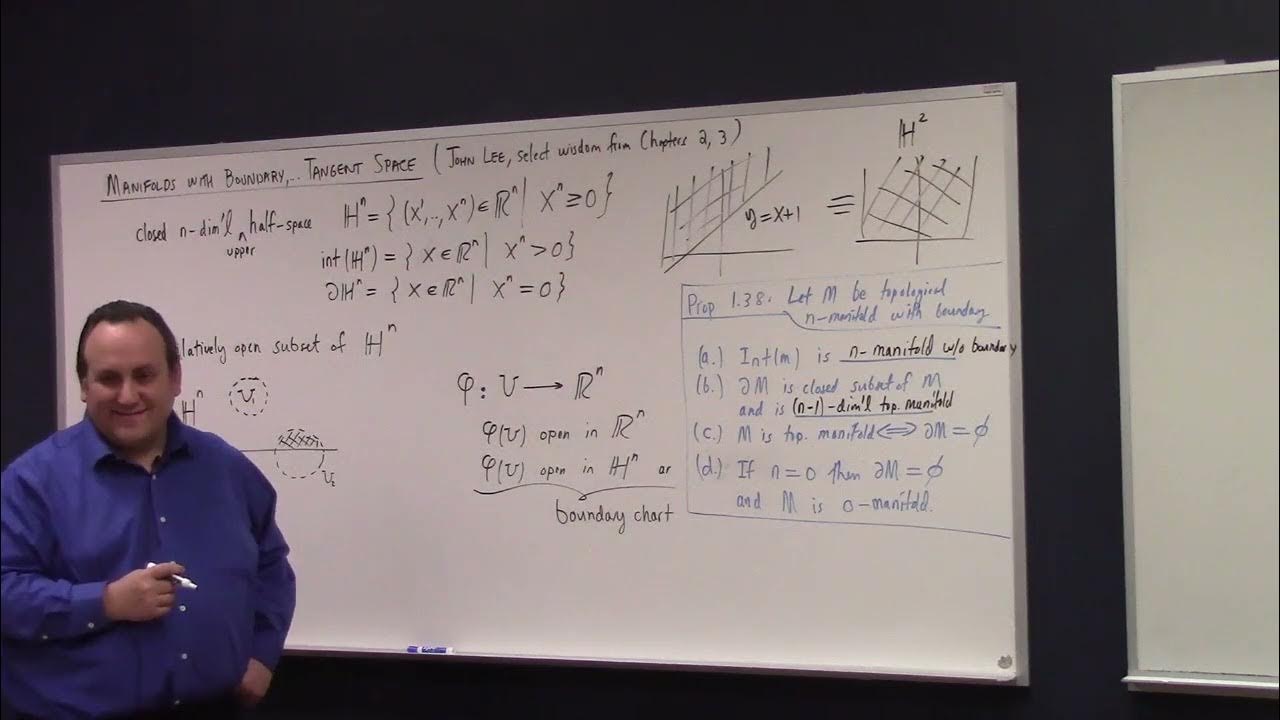 MANIFOLDS WITH BOUNDARY,.. TANGENT SPACE (JOHN LEE, select wisdom from Chapters 2, 3)
closed n-dim'l upper half-space
ℍⁿ = { (x¹,..,xⁿ) ∈ ℝⁿ | xⁿ ≥ 0 }
int(ℍⁿ) = { x ∈ ℝⁿ | xⁿ > 0 }
∂ℍⁿ = { x ∈ ℝⁿ | xⁿ = 0 }
y = x+1
≡
ℍ²
latively open subset of ℍⁿ
ℍⁿ
U
U₂
φ : U → ℝⁿ
φ(U) open in ℝⁿ
φ(U) open in ℍⁿ or
boundary chart
Prop 1.38. Let M be topological
n-manifold with boundary
(a.) Int(m) is n-manifold w/o boundary
(b.) ∂M is closed subset of M
and is (n-1)-dim'l top. manifold
(c.) M is top. manifold ⟺ ∂M = ϕ
(d.) If n=0 then ∂M = ϕ
and M is 0-manifold.